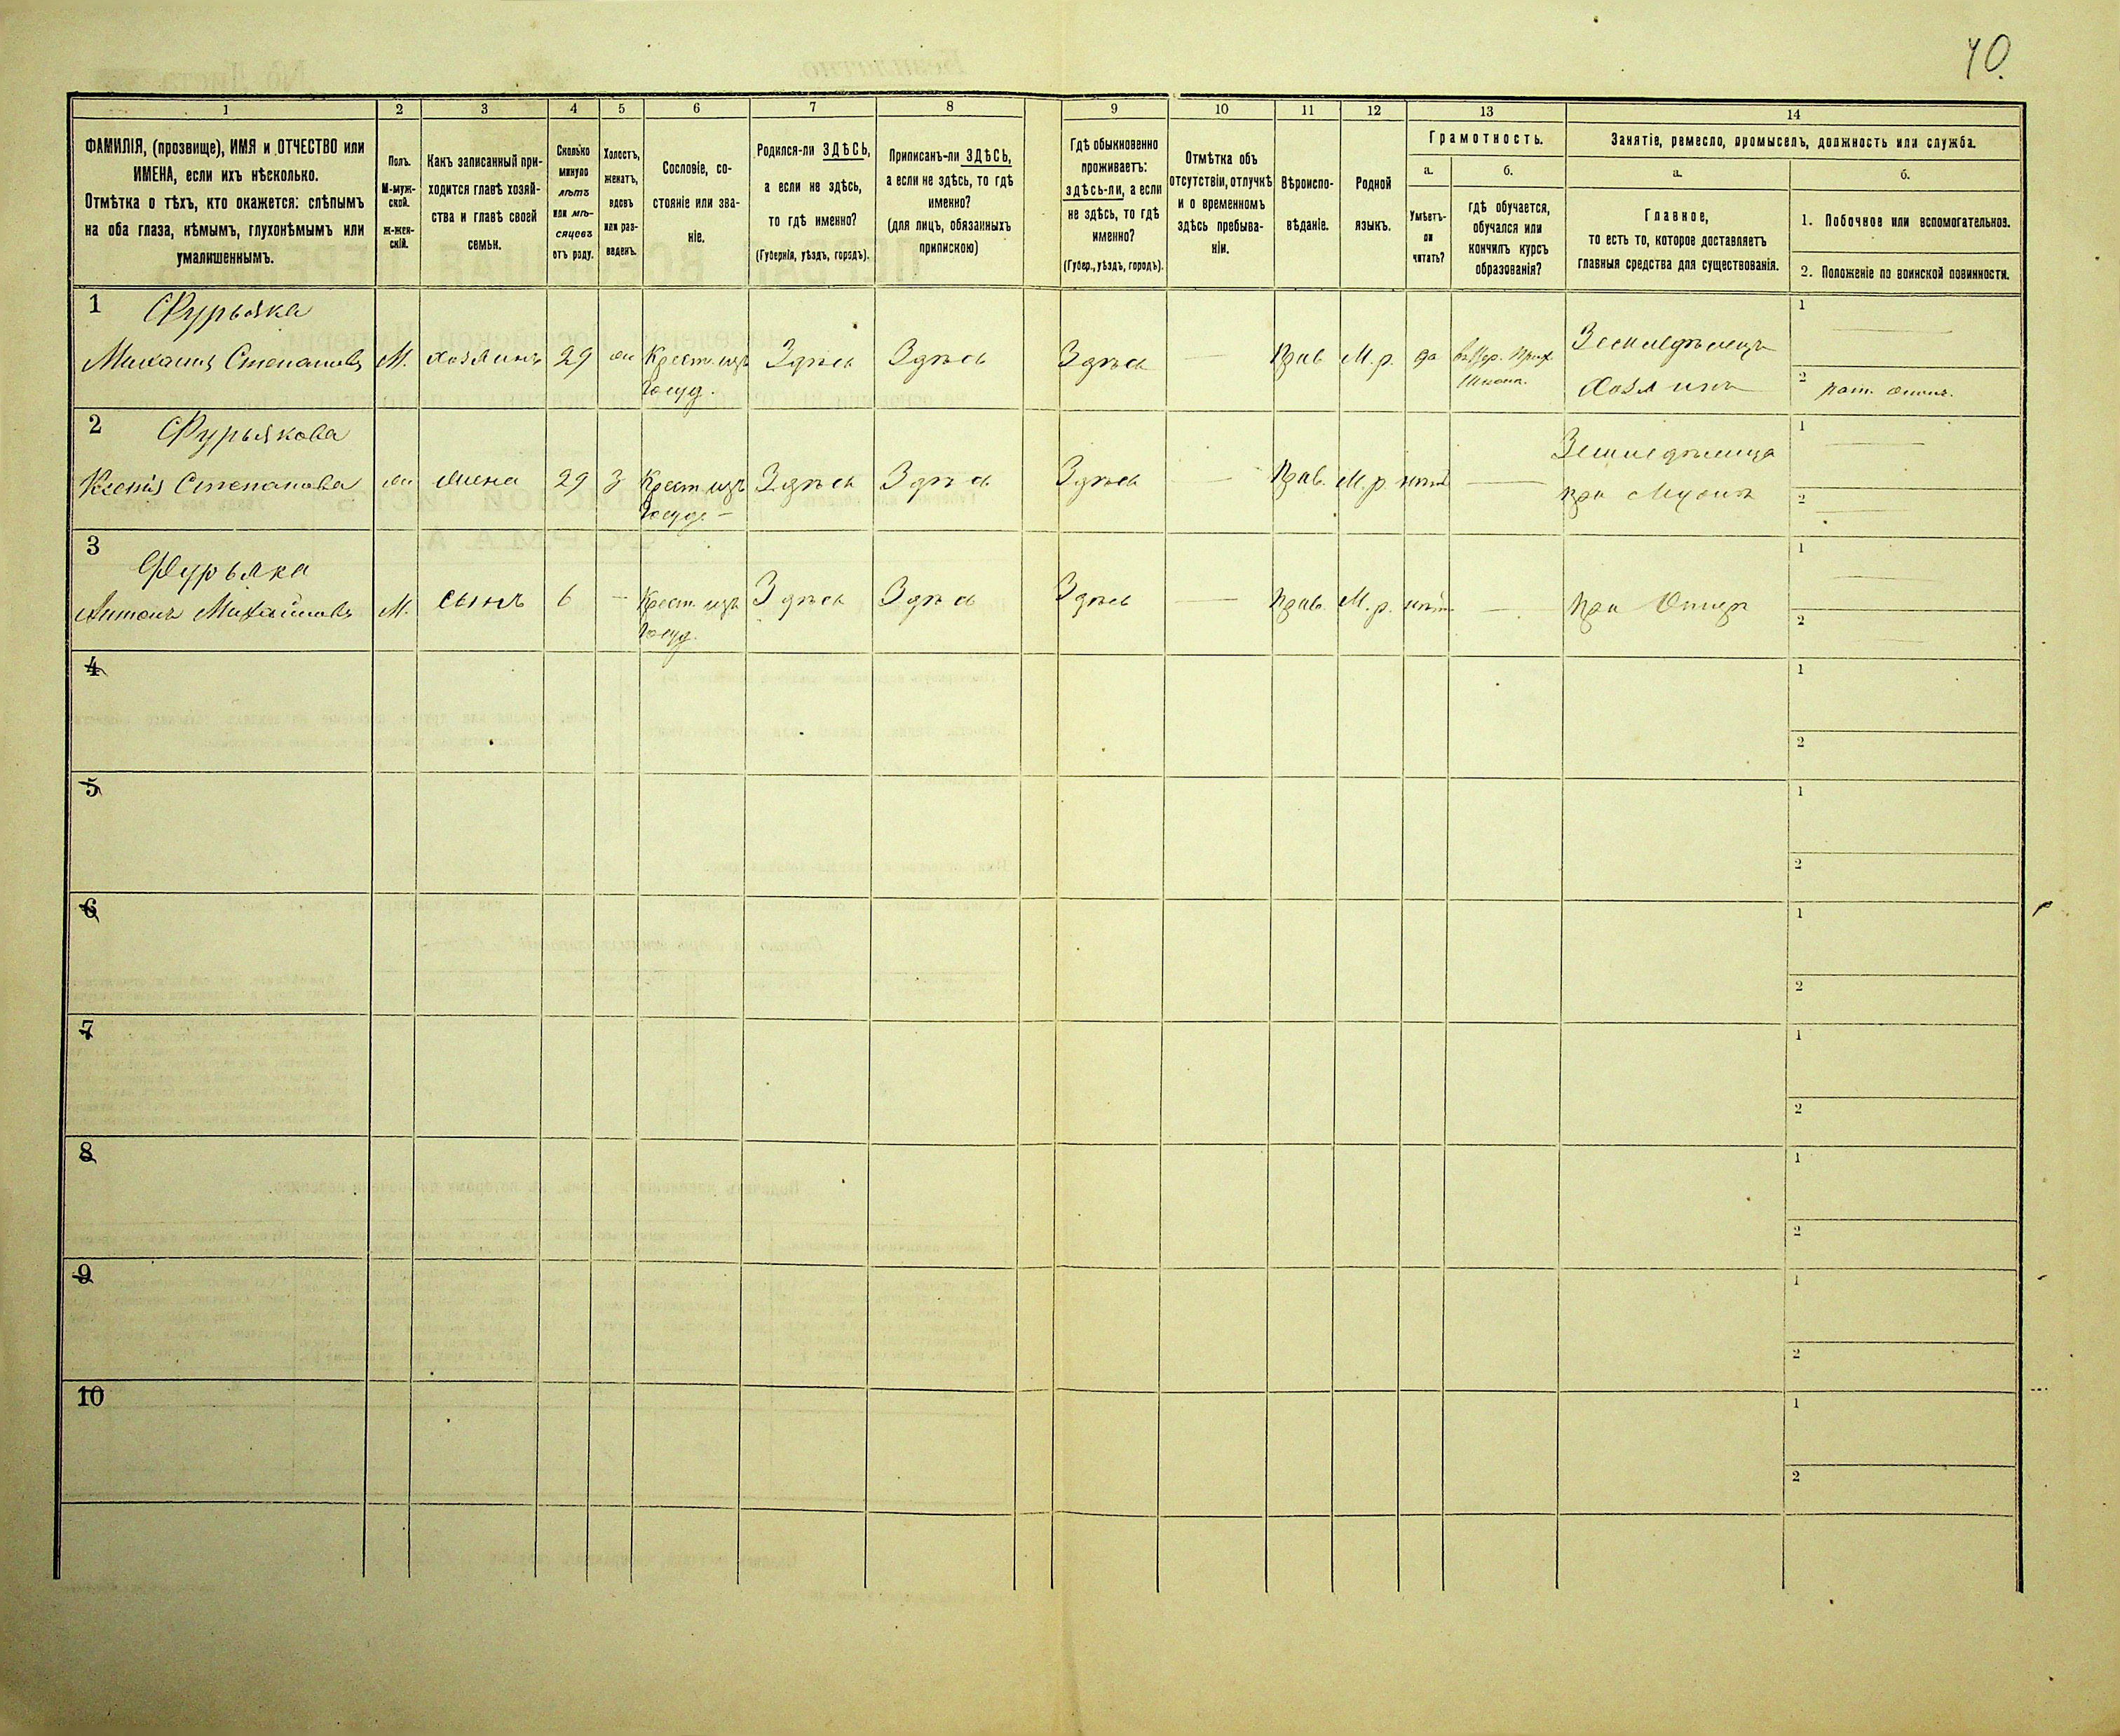 40.
1 2 3 4 5 6 7 8 9 10 11 12 13 14
ФАМИЛІЯ, (прозвище), ИМЯ и ОТЧЕСТВО или
ИМЕНА, если ихъ нѣсколько.
Отмѣтка о тѣхъ, кто окажется: слѣпымъ
на оба глаза, нѣмымъ, глухонѣмымъ или
умалишеннымъ.
Полъ.
М-муж-
ской.
ж-жен-
скій.
Какъ записанный при-
ходится главѣ хозяй-
ства и главѣ своей
семьи.
Сколько
минуло
лѣтъ
или мѣ-
сяцевъ
отъ роду.
Холостъ,
женатъ,
вдовъ
или раз-
веденъ.
Сословіе, со-
стояніе или зва-
ніе.
Родился-ли ЗДѢСЬ,
а если не здѣсь,
то гдѣ именно?
(Губернія, уѣздъ, городъ).
Приписанъ-ли ЗДѢСЬ,
а если не здѣсь, то гдѣ
именно?
(для лицъ, обязанныхъ
припискою)
Гдѣ обыкновенно
проживаетъ:
здѣсь-ли, а если
не здѣсь, то гдѣ
именно?
(Губер., уѣздъ, городъ).
Отмѣтка объ
отсутствіи, отлучкѣ
и о временномъ
здѣсь пребыва-
ніи.
Вѣроиспо-
вѣданіе.
Родной
языкъ.
Грамотность.
а.
Умѣетъ-
ли
читать?
б.
гдѣ обучается,
обучался или
кончилъ курсъ
образованія?
Занятіе, ремесло, промыселъ, должность или служба.
а.
Главное,
то есть то, которое доставляетъ
главныя средства для существованія.
б.
1. Побочное или вспомогательное.
2. Положеніе по воинской повинности.
1 Фурьяка
Михаилъ Степановъ М. хозяинъ 29 ж Крест. изъ Здѣсь Здѣсь Здѣсь — Прав М. р. да Земледѣлецъ 1
Госуд. Школа. Хозяинъ 2 рат. ополч.
2 Фурьякова
Ксенія Степанова ж жена 29 З Крест изъ Здѣсь Здѣсь Здѣсь — Прав. М. р нѣтъ — Земледѣлица 1
Госуд. — при Мужѣ 2
3 Фурьяка
Антонъ Михайловъ М. сынъ 6 — Крест. изъ Здѣсь Здѣсь Здѣсь — Прав. М. р. нѣтъ — при Отцѣ 1
Госуд. 2
4 1
2
5 1
2
6 1
2
7 1
2
8 1
2
9 1
2
10 1
2